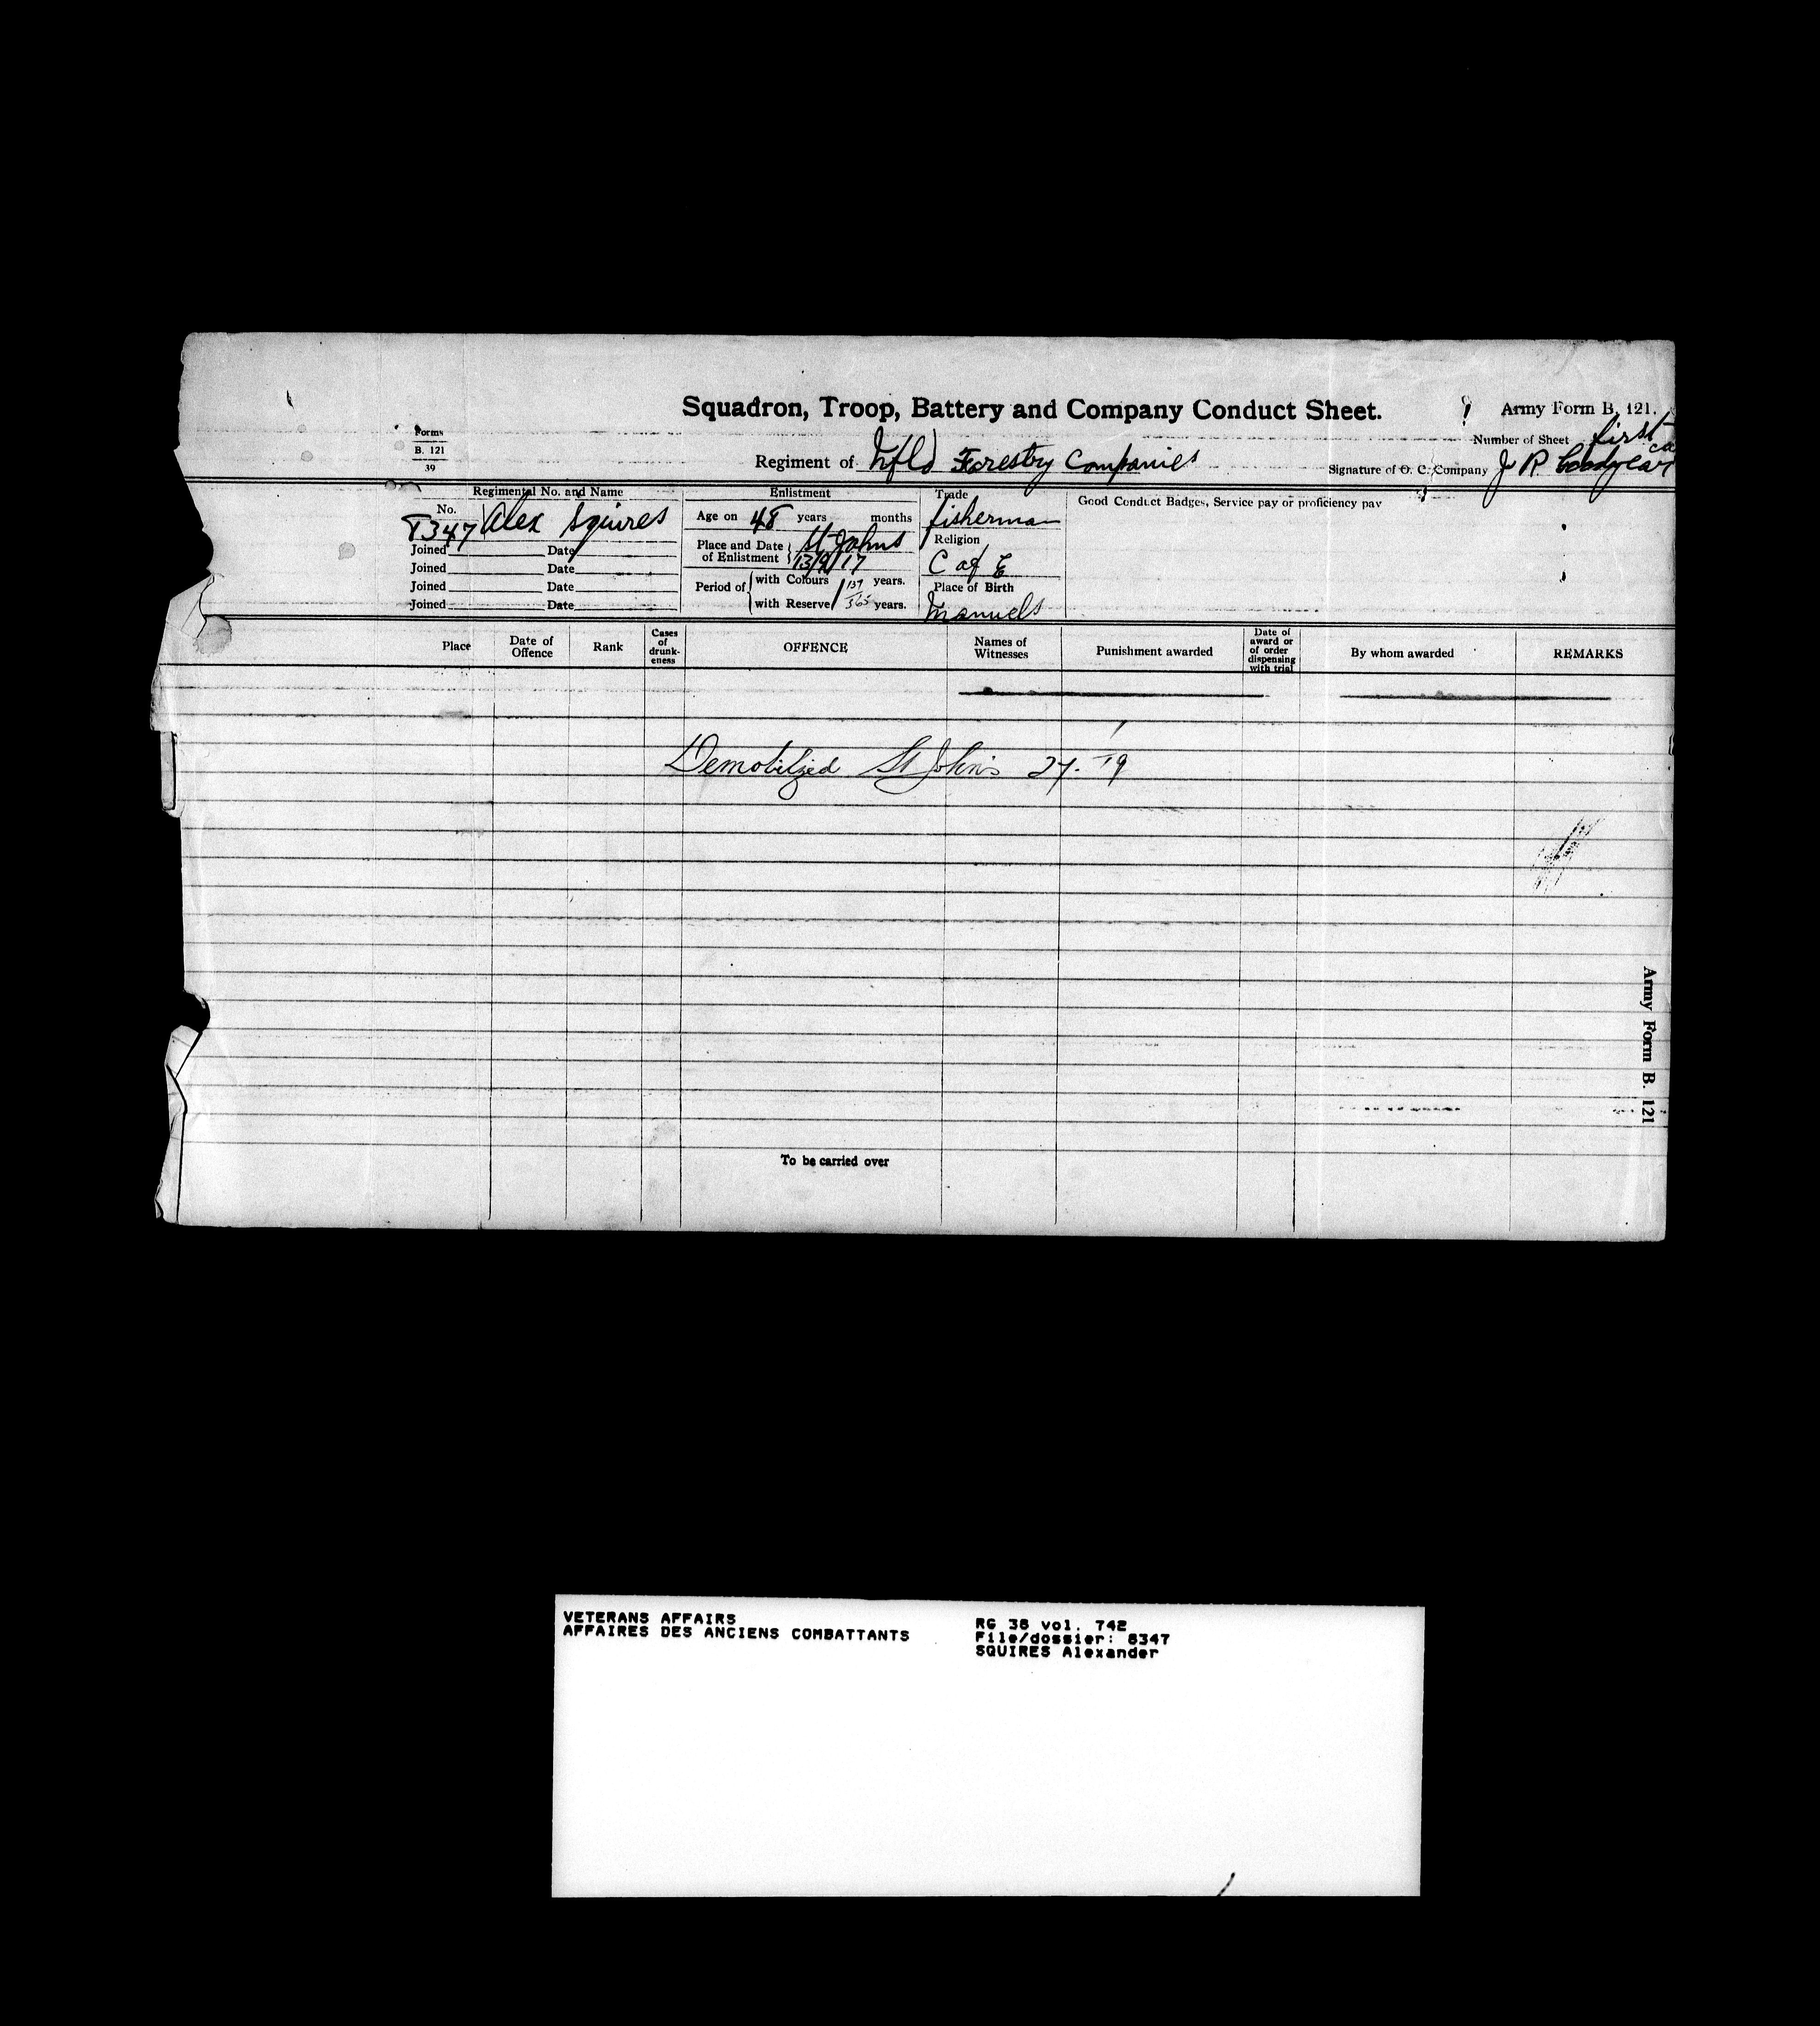 Squadron, Troop, Battery and Company Conduct Sheet.
Army Form B. 121.
Forms
B. 121
39
Number of Sheet first
Regiment of Nfld Forestry Companies
Signature of O. C. Company J R Goodyear
Regimental No. and Name
No.
8347 Alex Squires
Joined Date
Joined Date
Joined Date
Joined Date
Enlistment
Age on 48 years months
Place and Date of Enlistment St Johns 13/9/17
Period of with Colours 1 137/365 years.
with Reserve years.
Trade
fisherman
Religion
C of E
Place of Birth
Manuels
Good Conduct Badges, Service pay or proficiency pay
Place
Date of Offence
Rank
Cases of drunk-eness
OFFENCE
Names of Witnesses
Punishment awarded
Date of award or of order dispensing with trial
By whom awarded
REMARKS
Demobilzed St John's 27. 1 19
To be carried over
Army Form B. 121
VETERANS AFFAIRS
AFFAIRES DES ANCIENS COMBATTANTS
RG 38 vol. 742
File/dossier: 8347
SQUIRES Alexander